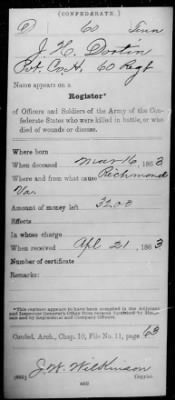 (CONFEDERATE.)
D 60 Tenn
J. H. Dostin
Pvt. Co. H. 60 Regt
Name appears on a
Register*
of Officers and Soldiers of the Army of the Con-
federate States who were killed in battle, or who
died of wounds or disease.
Where born
When deceased Mar 16, 1863
Where and from what cause Richmond
Va.
Amount of money left
Effects
In whose charge
When received Apl 21, 1863
Number of certificate
Remarks:
*This register appears to have been compiled in the Adjutant
and Inspector General's Office from
Confed. Arch., Chap. 10, File No. 11, page 63
J. W. Wilkinson
Copyist.